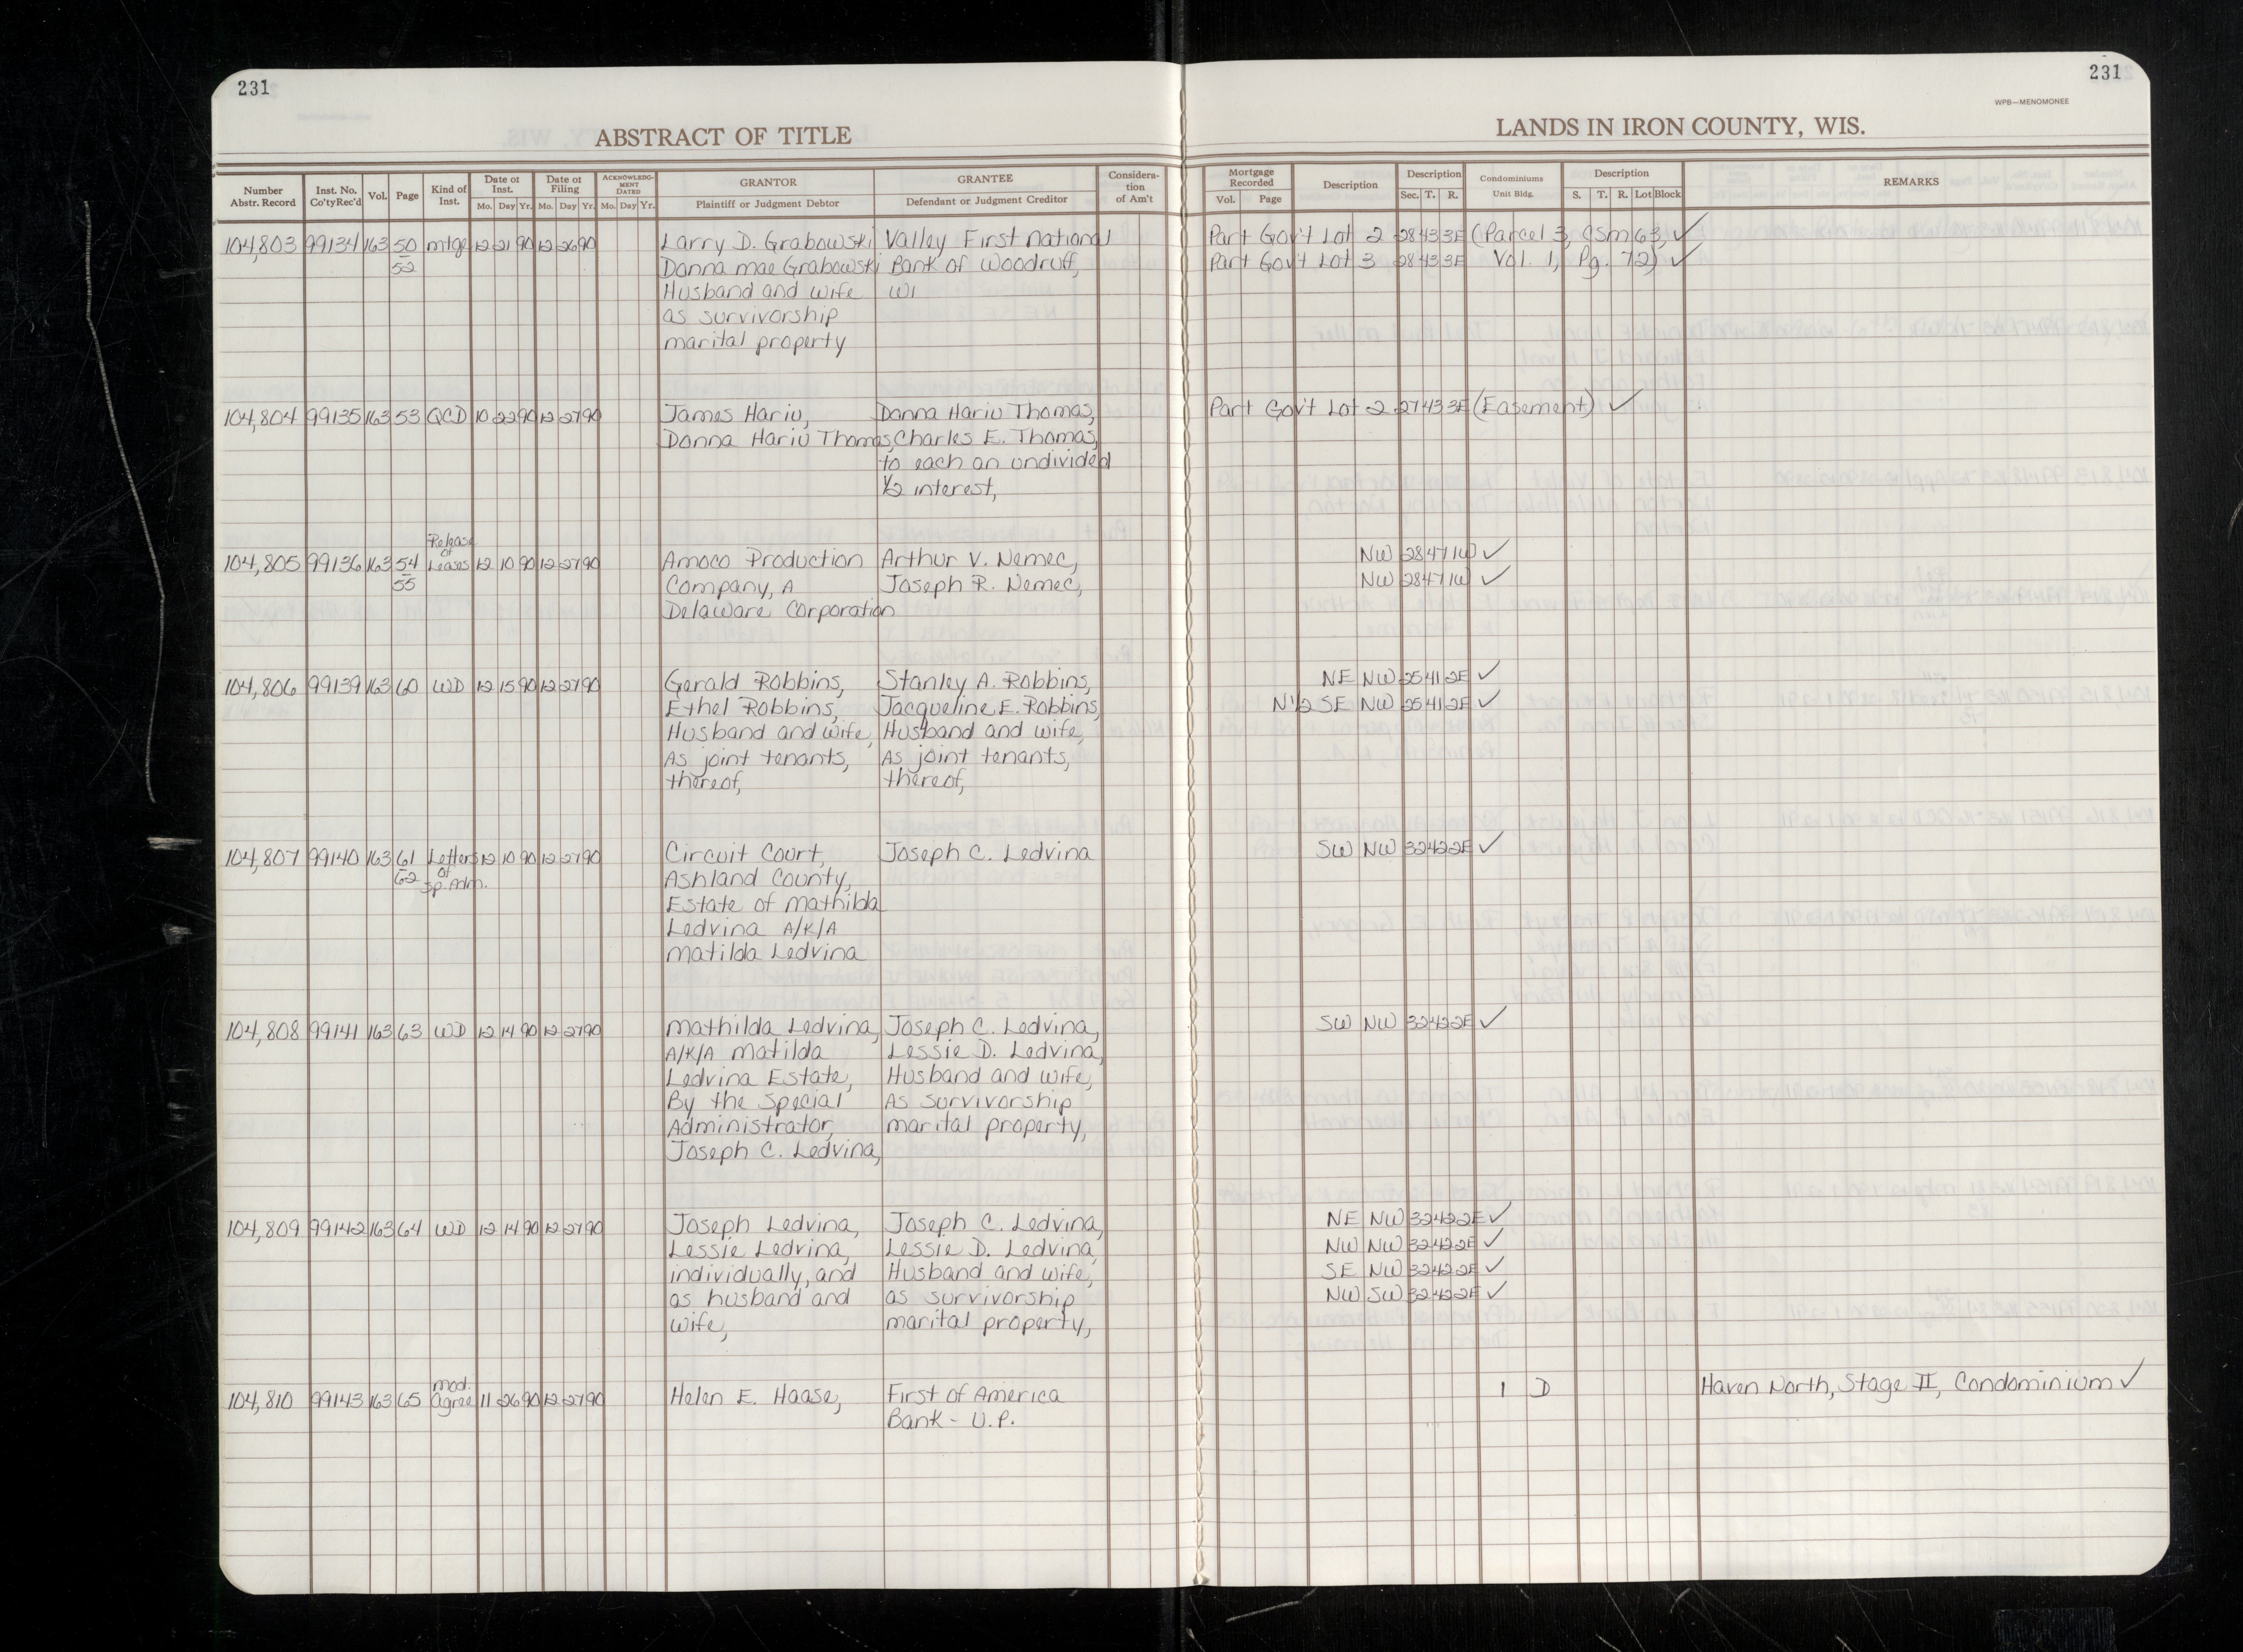 231
231
WPB—MENOMONEE
ABSTRACT OF TITLE
LANDS IN IRON COUNTY, WIS.
Number Abstr. Record Inst. No. Co'ty Rec'd Vol. Page Kind of Inst. Date of Inst. Mo. Day Yr. Date of Filing Mo. Day Yr. ACKNOWLEDGMENT DATED Mo. Day Yr. GRANTOR Plaintiff or Judgment Debtor GRANTEE Defendant or Judgment Creditor Consideration of Am't Mortgage Recorded Vol. Page Description Description Sec. T. R. Condominiums Unit Bldg. Description S. T. R. Lot Block REMARKS
104,803 99134 163 50 mtge 12 21 90 12 26 90 Larry D. Grabowski Valley First National Part Gov't Lot 2 28 43 3E (Parcel 3, CSM 63, ✓
52 Donna Mae Grabowski Bank of Woodruff, Part Gov't Lot 3 28 43 3E Vol. 1, Pg. 72) ✓
Husband and wife WI
as survivorship
marital property
104,804 99135 163 53 QCD 10 22 90 12 27 90 James Hariu, Donna Hariu Thomas, Part Gov't Lot 2 27 43 3E (Easement) ✓
Donna Hariu Thomas, Charles E. Thomas,
to each an undivided
1/2 interest,
Release
of
104,805 99136 163 54 Leases 12 10 90 12 27 90 Amoco Production Arthur V. Nemec, NW 28 47 1W ✓
55 Company, A Joseph R. Nemec, NW 28 47 1W ✓
Delaware Corporation
104,806 99139 163 60 WD 12 15 90 12 27 90 Gerald Robbins, Stanley A. Robbins, NE NW 25 41 2E ✓
Ethel Robbins, Jacqueline E. Robbins, N1/2 SE NW 25 41 2E ✓
Husband and wife, Husband and wife,
As joint tenants, As joint tenants,
thereof, thereof,
104,807 99140 163 61 Letters 12 10 90 12 27 90 Circuit Court, Joseph C. Ledvina SW NW 32 42 2E ✓
62 of Ashland County,
Sp. Adm. Estate of Mathilda
Ledvina A/K/A
Matilda Ledvina
104,808 99141 163 63 WD 12 14 90 12 27 90 Mathilda Ledvina, Joseph C. Ledvina, SW NW 32 42 2E ✓
A/K/A Matilda Lessie D. Ledvina,
Ledvina Estate, Husband and wife,
By the Special As survivorship
Administrator, marital property,
Joseph C. Ledvina,
104,809 99142 163 64 WD 12 14 90 12 27 90 Joseph Ledvina, Joseph C. Ledvina, NE NW 32 42 2E ✓
Lessie Ledvina, Lessie D. Ledvina, NW NW 32 42 2E ✓
individually, and Husband and wife, SE NW 32 42 2E ✓
as husband and as survivorship NW SW 32 42 2E ✓
wife, marital property,
mod.
104,810 99143 163 65 Agree 11 26 90 12 27 90 Helen E. Haase, First of America 1 D Haven North, Stage II, Condominium ✓
Bank - U.P.